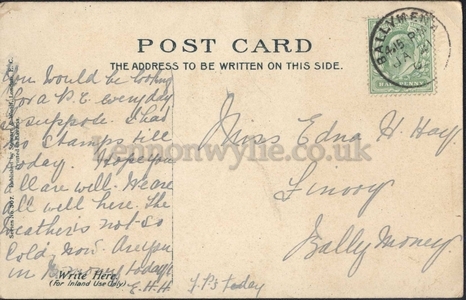 POST CARD
THE ADDRESS TO BE WRITTEN ON THIS SIDE.
BALLYMENA
HALFPENNY
You would be looking
for a P.C. everyday
I suppose. I had
no stamps till
today. Hope you
all are well. We are
all well here. The
weather is not so
cold now. Are you
in today
E.H.H
Write Here.
(For Inland Use Only)
Miss Edna H. Hay
Finvoy
Bally Money
Lennonwylie.co.uk